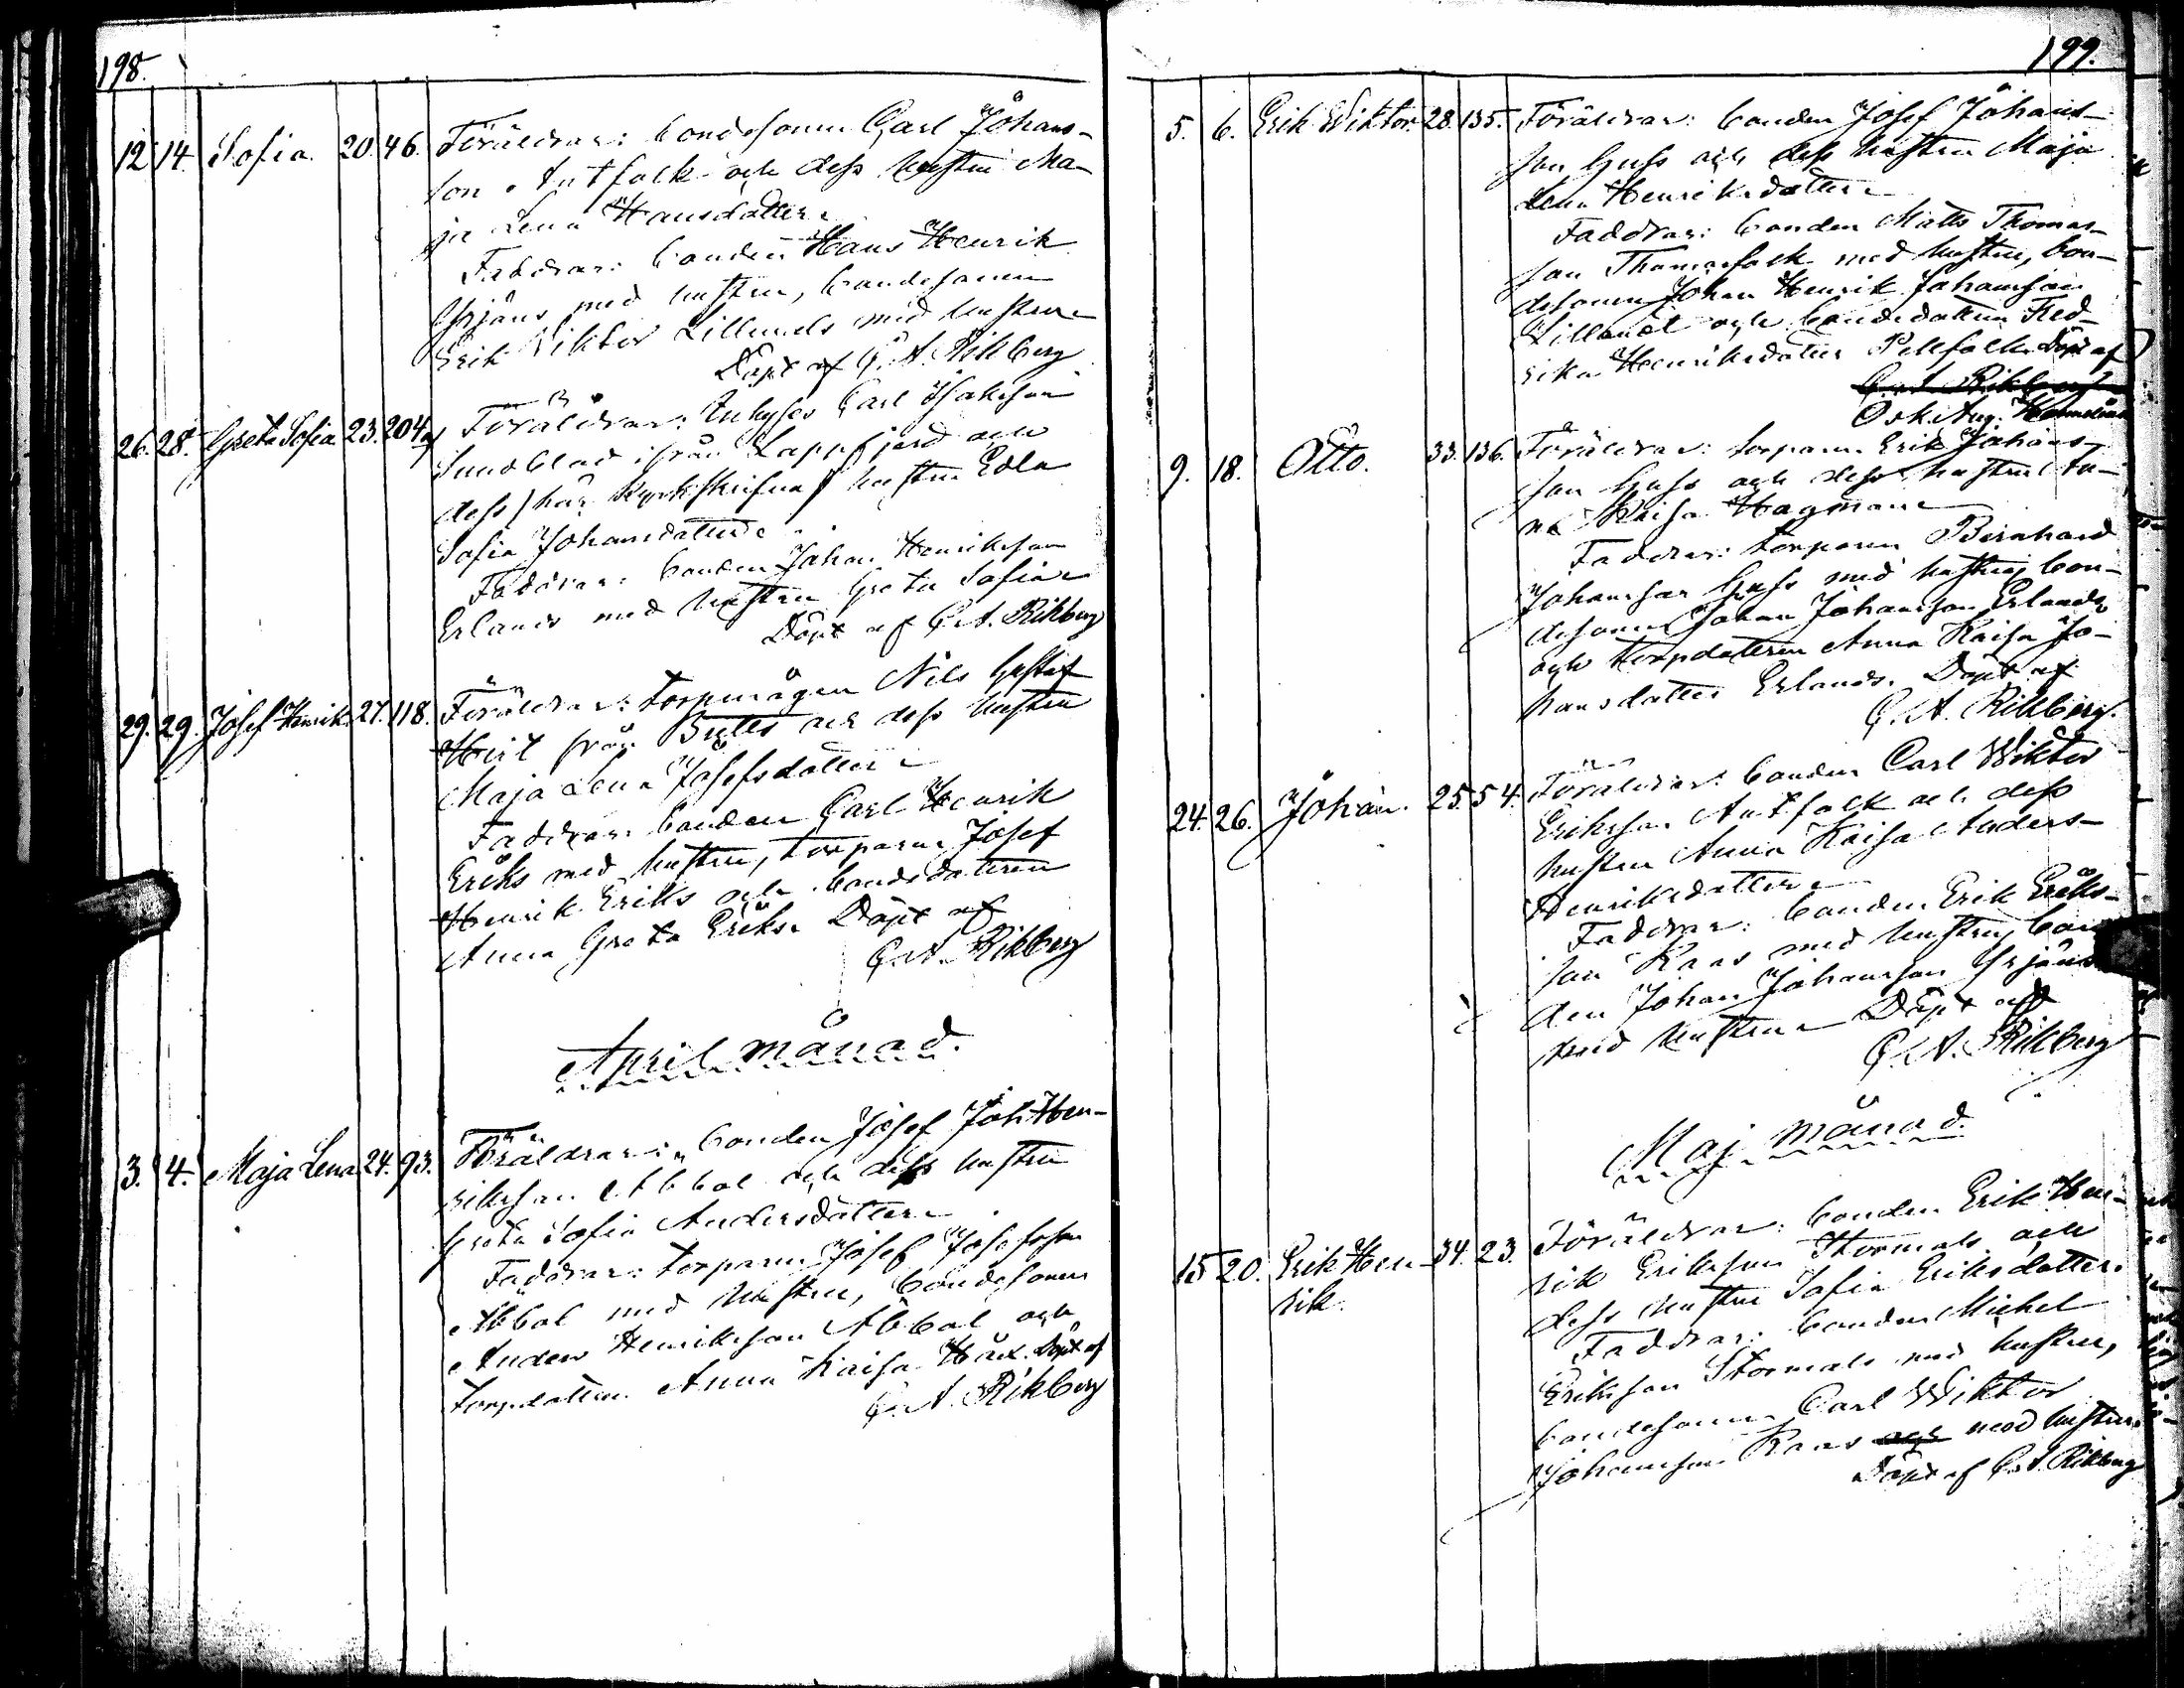 198.
12 14. Sofia. 20. 46. Föräldrar: bondesonen Carl Johans-
son Antfolk och dess hustru Ma-
ja Lena Hansdotter.
Faddrar: bonden Hans Henrik
Yrjäns med hustru, bondesonen
Erik Viktor Lillmels med hustru.
Döpt af C. A. Rikberg
26. 28. Greta Sofia 23. 204 Föräldrar: Inhyses Carl Isaksson
Sundblad ifrån Lappfjerd och
dess /här kyrkskrifna/ hustru Edla
Sofia Johansdotter.
Faddrar: bonden Johan Henriksson
Erlands med hustru Greta Sofia.
Döpt af C. A. Rikberg
29. 29. Josef Henrik. 27. 118. Föräldrar: torpmågen Nils Gustaf
från Butts och dess hustru
Maja Lena Josefsdotter.
Faddrar: bonden Carl Henrik
Eriks med hustru, torparen Josef
Henrik Eriks och bondedottren
Anna Greta Eriks. Döpt af
C. A. Rikberg
April månad.
3. 4. Maja Lena 24. 93. Föräldrar: bonden Josef Joh. Hen-
riksson Abbal och dess hustru
Greta Sofia Andersdotter.
Faddrar: torparen Josef Josefsson
Abbal med hustru, bondesonen
Anders Henriksson Abbal och
torpdottren Anna Kaisa Döpt af
C. A. Rikberg
199.
5. 6. Erik Wiktor. 28. 135. Föräldrar: bonden Josef Johans-
son Guss och dess hustru Maja
Lena Henriksdotter.
Faddrar: bonden Matts Thomas-
son Thomasfolk med hustru, bon-
desonen Johan Henrik Johansson
och bondedottren Fred-
rika Henriksdotter Pellfolk. Döpt af
C. A. Rikberg
Osk. Aug.
9. 18. Otto. 33. 136. Föräldrar: torparen Erik Johans-
son Guss och dess hustru An-
na Kaisa Hagman.
Faddrar: torparen Bernhard
Johansson Guss med hustru, bon-
desonen Johan Johansson Erlands
och torpdottren Anna Kaisa Jo-
hansdotter Erlands. Döpt af
C. A. Rikberg.
24. 26. Johan. 25. 54. Föräldrar: bonden Carl Wiktor
Eriksson Antfolk och dess
hustru Anna Kaisa Anders-
Henriksdotter.
Faddrar: bonden Erik Eriks-
son Raas med hustru, bon-
den Johan Johansson Yrjäns
med hustru. Döpt af
C. A. Rikberg
Maj månad.
15 20. Erik Hen- 34. 23. Föräldrar: bonden Erik Hen-
rik. rik Eriksson Stormals och
dess hustru Sofia Eriksdotter.
Faddrar: bonden Michel
Eriksson Stormals med hustru,
bondesonen Carl Wiktor
Johansson Raas och med hustru.
Döpt af C. A. Rikberg